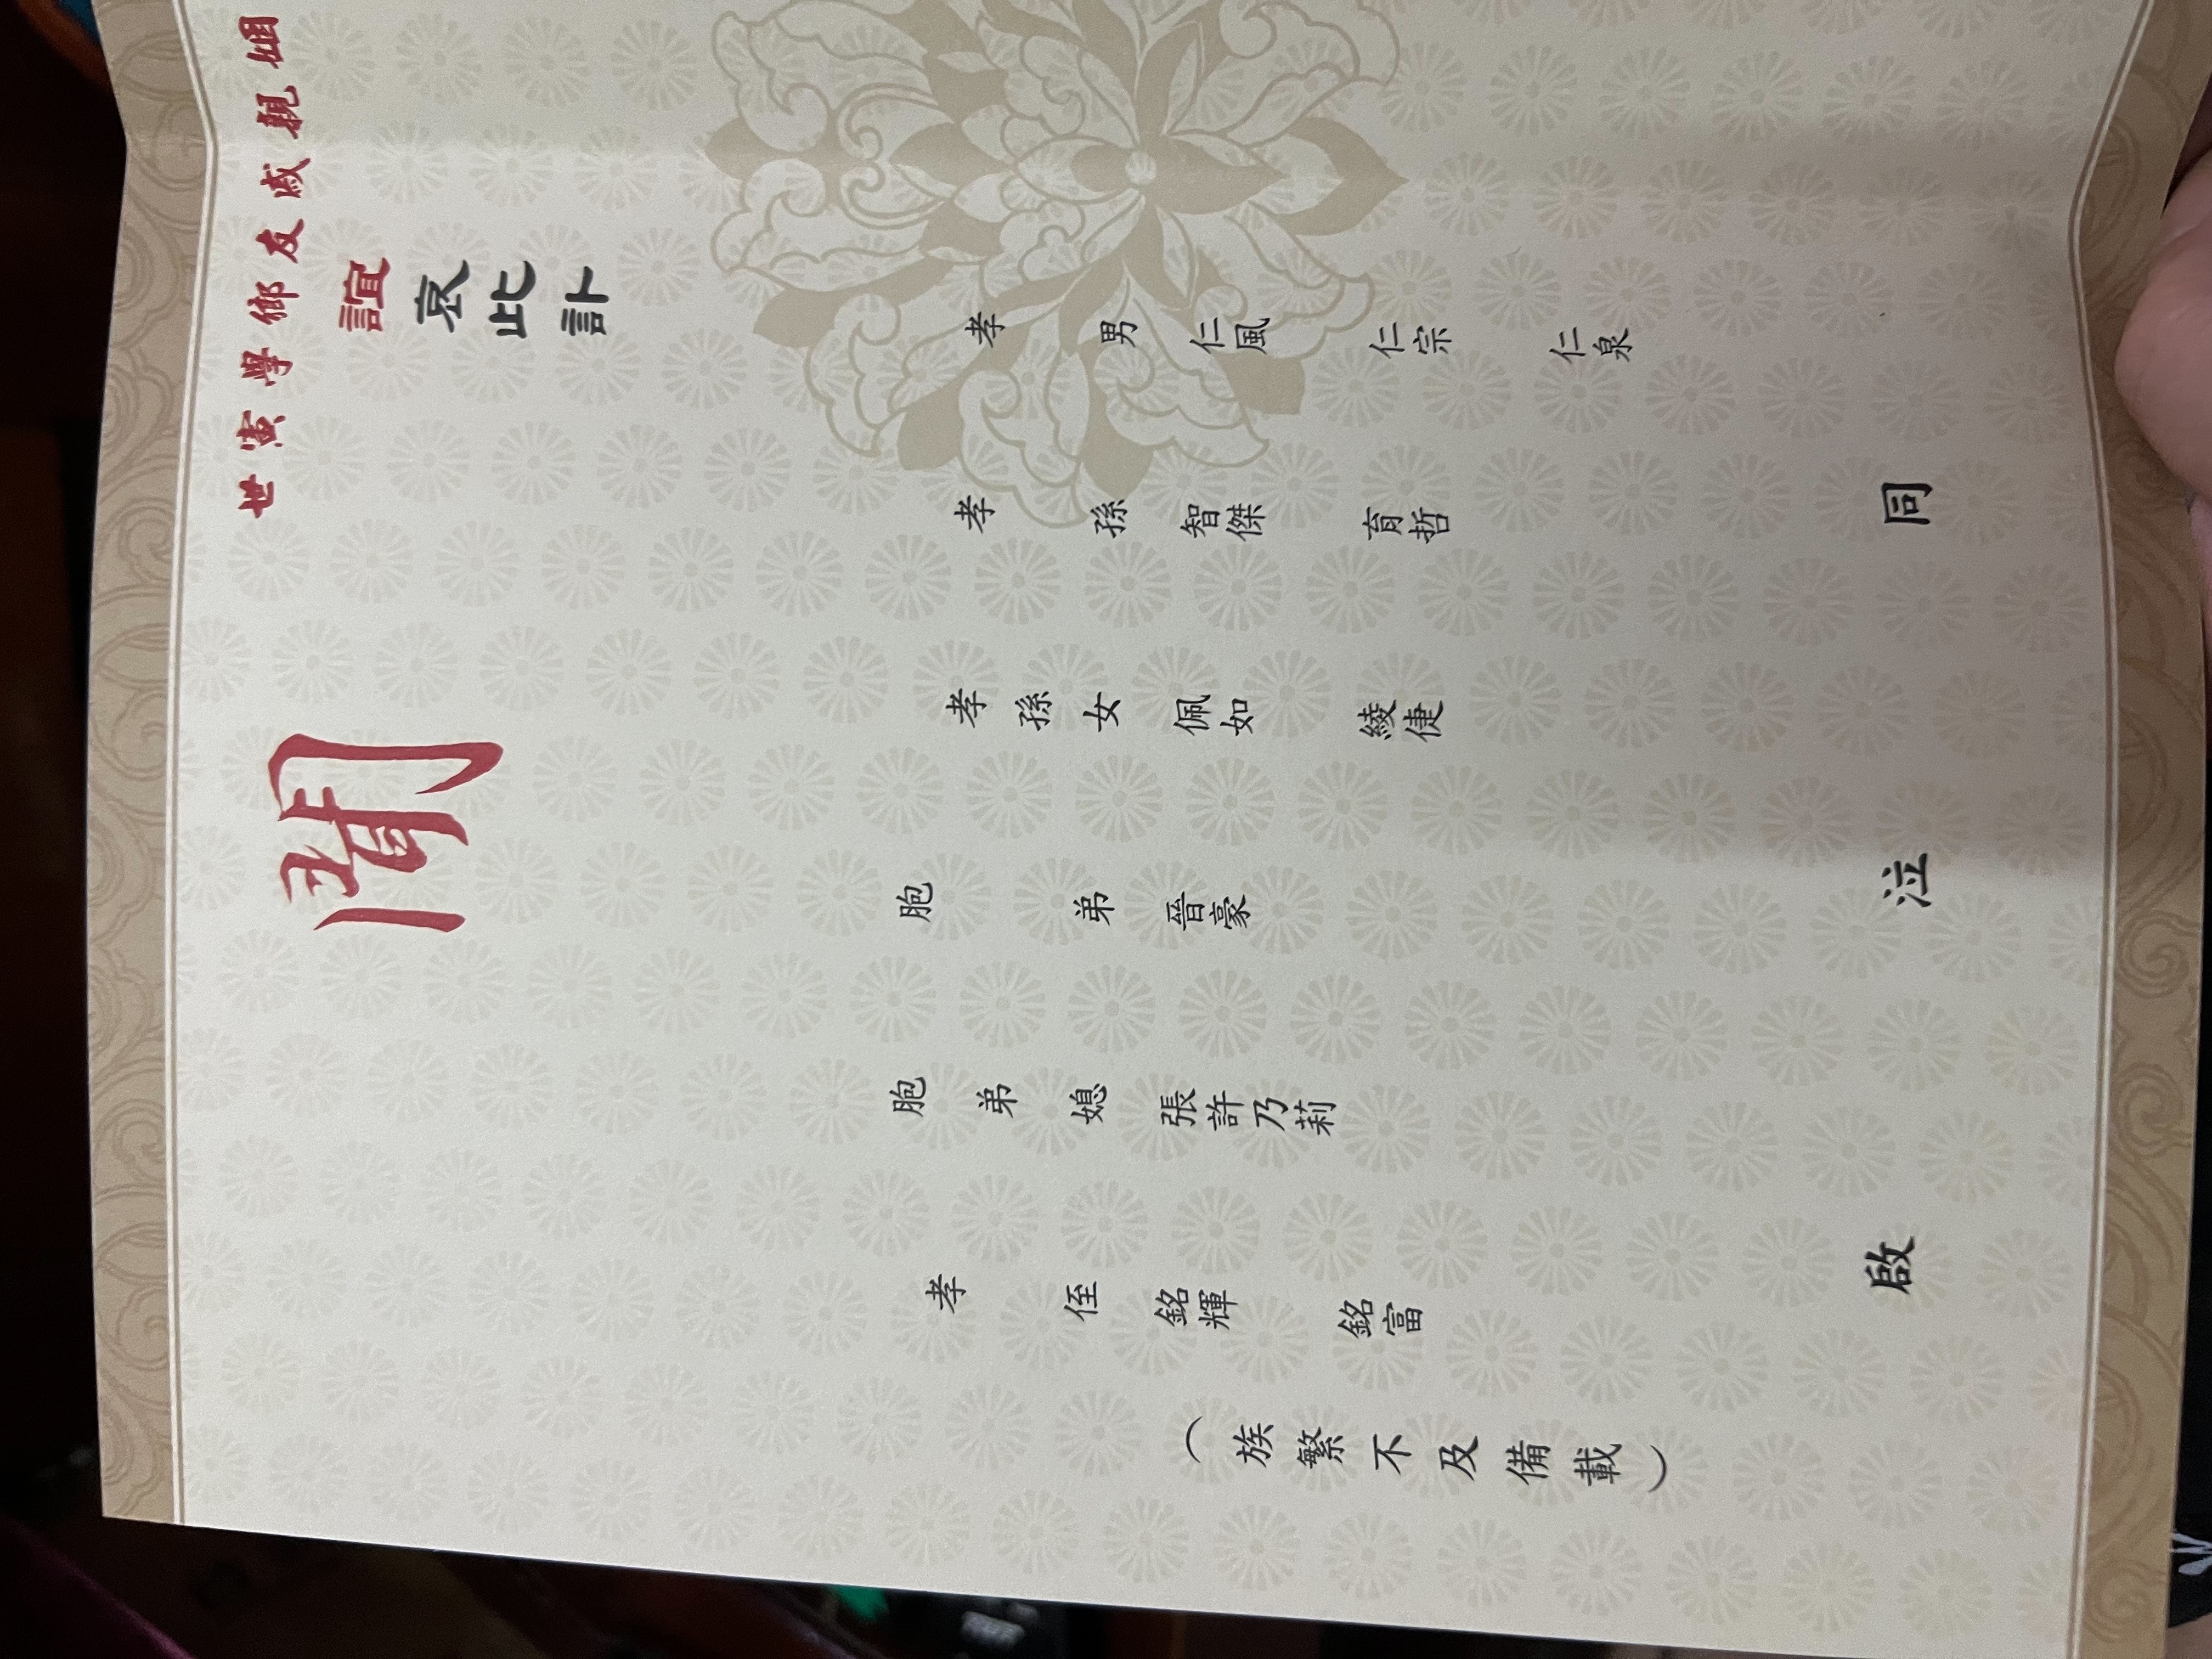 姻親戚友鄉學寅世
誼哀此訃
聞
孝男仁風 仁宗 仁泉
孝孫智傑 育哲
孝孫女佩如 綾倢
胞弟晉豪
胞弟媳張許乃莉
孝侄銘輝 銘富
(族繁不及備載)
同泣啟